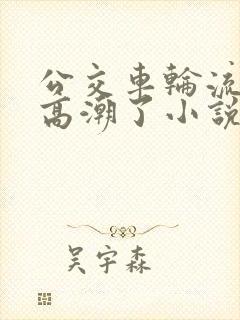 公交車輪流
高潮了小說
吴宇森